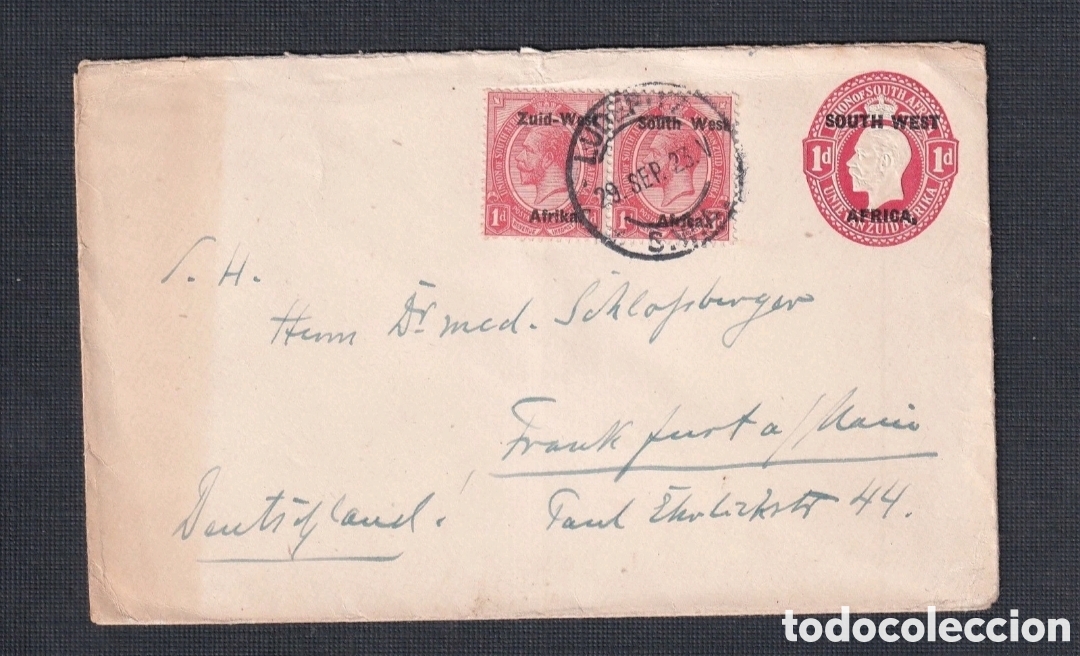 UNION OF SOUTH AFRICA
SOUTH WEST
1d 1d
AFRICA.
UNIE VAN ZUID AFRIKA
Zuid-West South West
Afrika. Africa.
1d 1
LUDERITZ
29 SEP. 23
S.W.
S. H.
Herrn Dr med. Schloßberger
Frankfurt a/Main
Deutschland! Paul Ehrlichstr 44.
todocoleccion